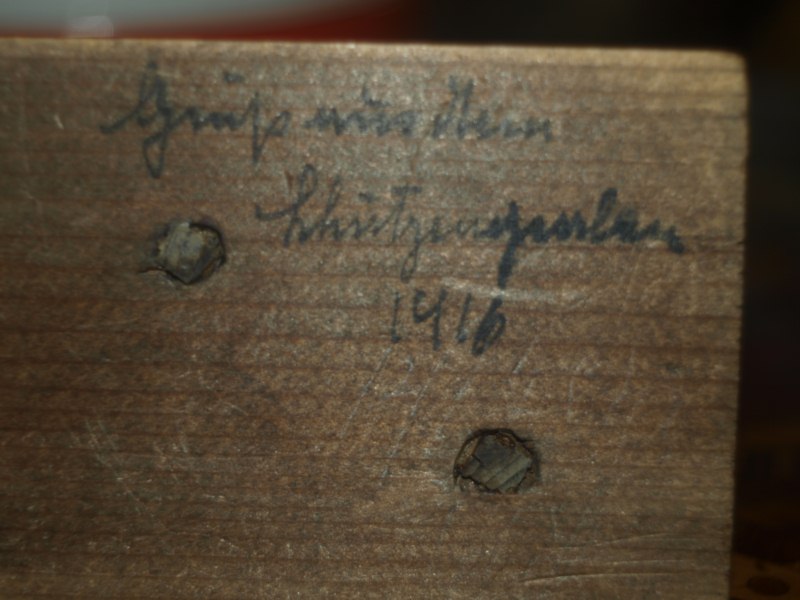 Gruß aus dem
Schützengraben
1916